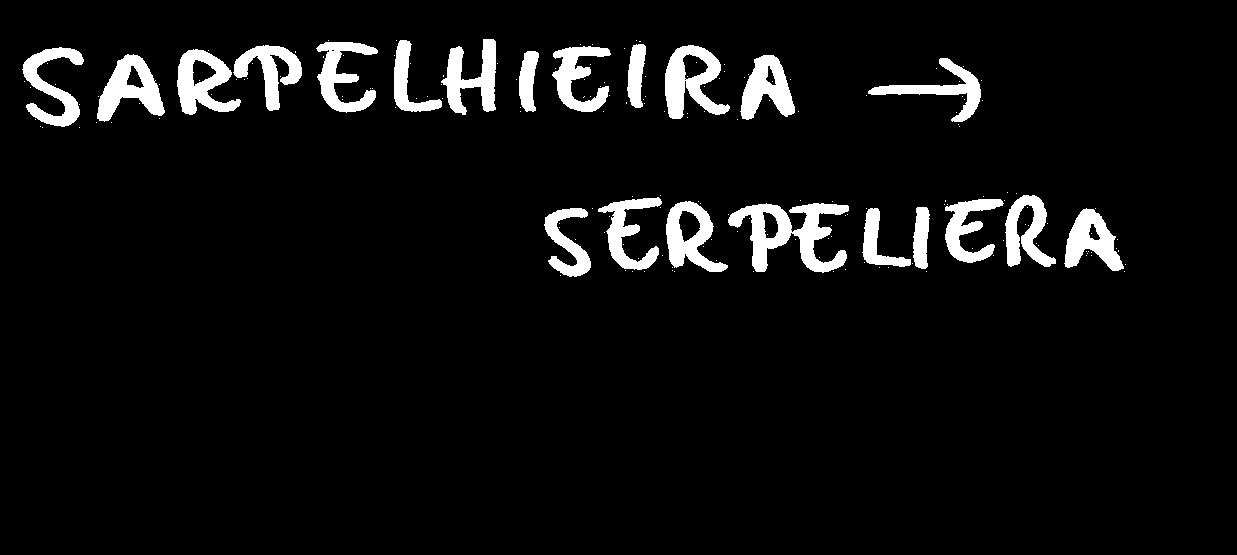 SARPELHIEIRA →
SERPELIERA